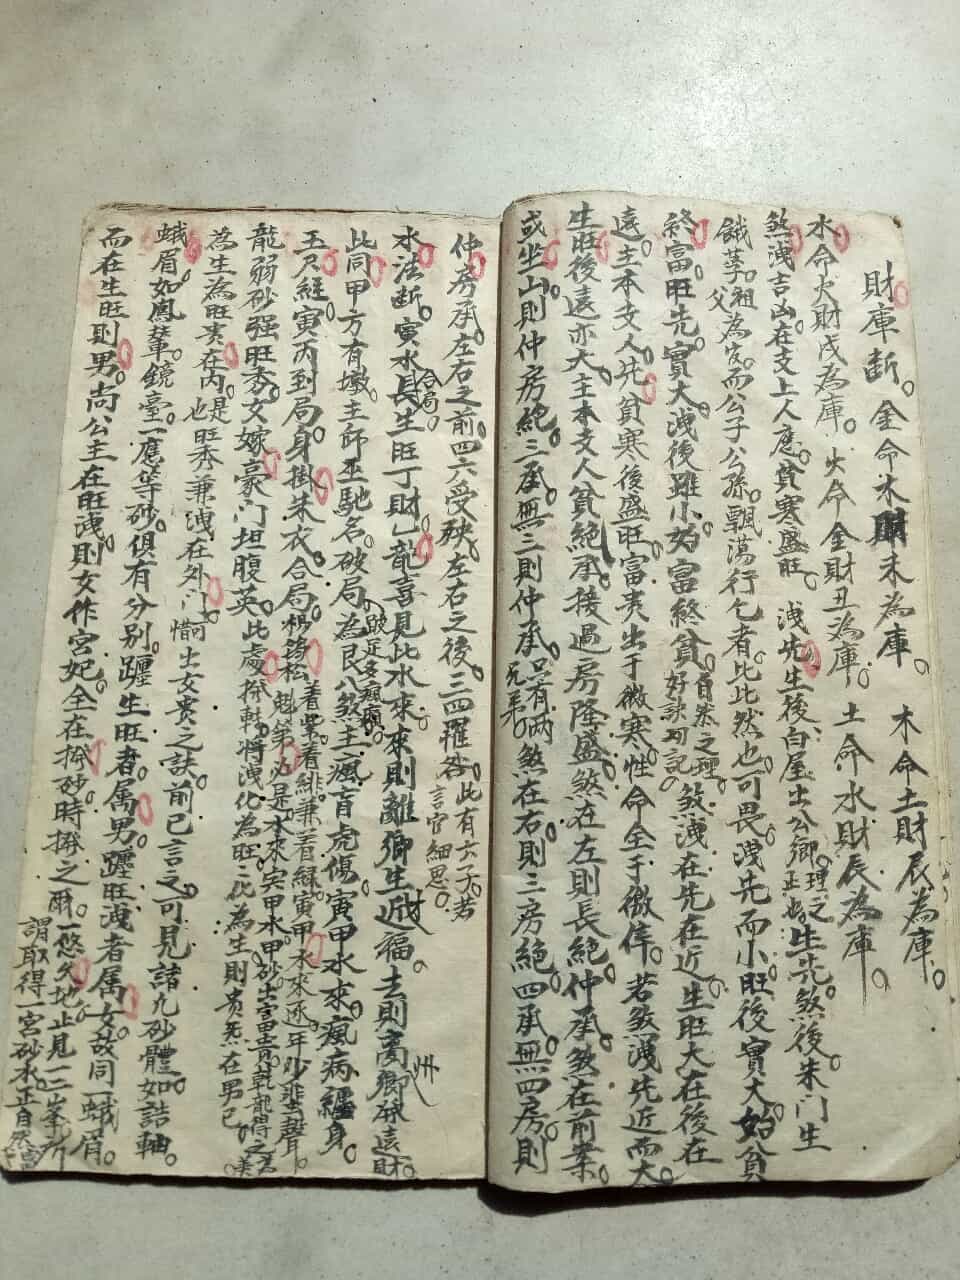 財庫断。金命木財未為庫。木命土財辰為庫。
水命火財戌為庫。火命金財丑為庫。土命水財辰為庫。
煞洩吉凶在支上人應。貧寒盛旺。洩先生後白屋出公卿。理之正也。生先煞後朱门生
餓莩。祖父為官。而公子公孫。飄蕩行乞者。比比然也。可畏。洩先而小旺後實大始貧
終富。旺先實大洩後雖小。始富終貧。自然之理。好訣切記。煞洩在先在近生旺大在後在
遠。主本支人先貧寒後盛旺富贵出于微寒。性命全于微倖。若煞洩先近而大
生旺後遠亦大。主本支人貧絶。承接過房隆盛。煞在左則長絶。仲承。煞在前案。
或坐山則仲房絶。三承。無三則仲承。只有兩兄弟。煞在右。則三房絶。四承。無四房則
仲房承。左右之前四六受殃。左右之後。三四罹咎。此有六子。若言官細思。
水法断。寅水長生旺丁財。合局。乙龍喜見此水來。來則離鄉生近財福。去則离鄉州破遠財
此同甲方有墩。主師巫馳名。破局為艮八煞。主瘋盲虎傷。寅甲水來。瘋病纏身。
五尺經。寅丙到局。身掛朱衣。合局。楊筠松 着紫着緋兼着緑。寅甲水來逐年少蜚聲。
龍弱砂强旺秀。女嫁豪门坦腹英。此處
為生為旺贵在内。是也旺秀兼洩在外门 出女贵之訣。前已言之。可見諸九砂體如誥軸
蛾眉如鳳輦。鏡臺。一應等砂。俱有分别。躔生旺者。属男。躔旺洩者属女。故同一蛾眉。
而在生旺則男。尚公主在旺洩。則女作宮妃。全在撥砂時撥之爾。一悠久地止見一二峯所
謂取得一宮砂水正自然富